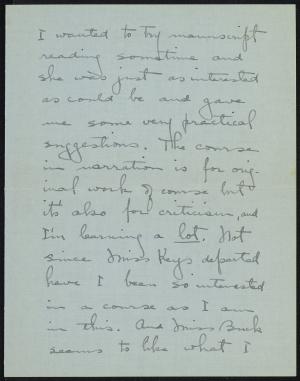 I wanted to try manuscript
reading sometime and
she was just as interested
as could be and gave
me some very practical
suggestions. The course
in narration is for orig-
inal work of course but
it's also for criticism, and
I'm learning a lot. Not
since Miss Keys departed
have I been so interested
in a course as I am
in this. And Miss Buck
seems to like what I